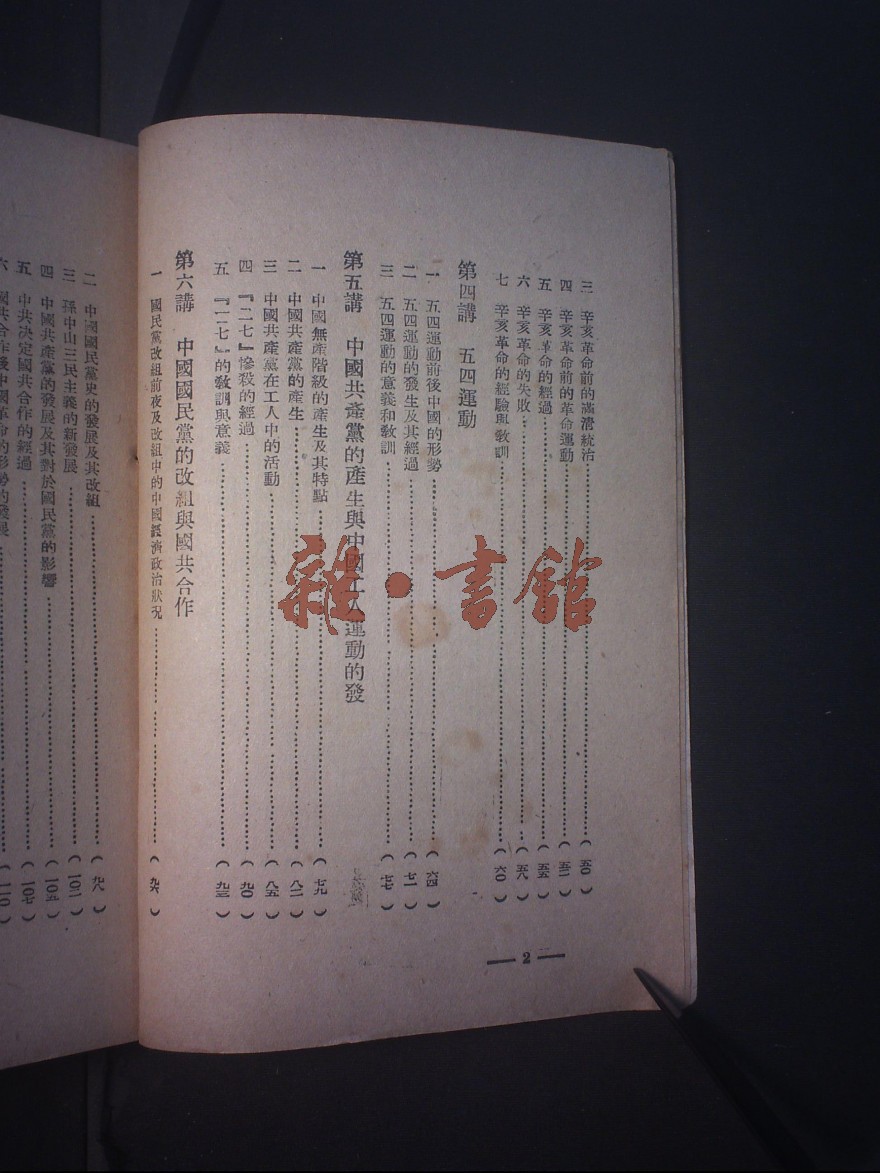 三　辛亥革命前的滿清統治……（五〇）
四　辛亥革命前的革命運動……（五二）
五　辛亥革命的經過……（五五）
六　辛亥革命的失敗……（五八）
七　辛亥革命的經驗與敎訓……（六〇）
第四講　五四運動
一　五四運動前後中國的形勢……（六四）
二　五四運動的發生及其經過……（七一）
三　五四運動的意義和敎訓……（七七）
第五講　中國共產黨的產生與中國工人運動的發
一　中國無產階級的產生及其特點……（七九）
二　中國共產黨的產生……（八二）
三　中國共產黨在工人中的活動……（八五）
四　『二七』慘殺的經過……（九〇）
五　『二七』的敎訓與意義……（九三）
第六講　中國國民黨的改組與國共合作
一　國民黨改組前夜及改組中的中國經濟政治狀况……（九六）
二　中國國民黨史的發展及其改組……（九八）
三　孫中山三民主義的新發展……（一〇二）
四　中國共產黨的發展及其對於國民黨的影響……（一〇五）
五　中共決定國共合作的經過……（一〇七）
六　國共合作後中國革命的形勢的發展……（一一〇）
— 2 —
雜·書館